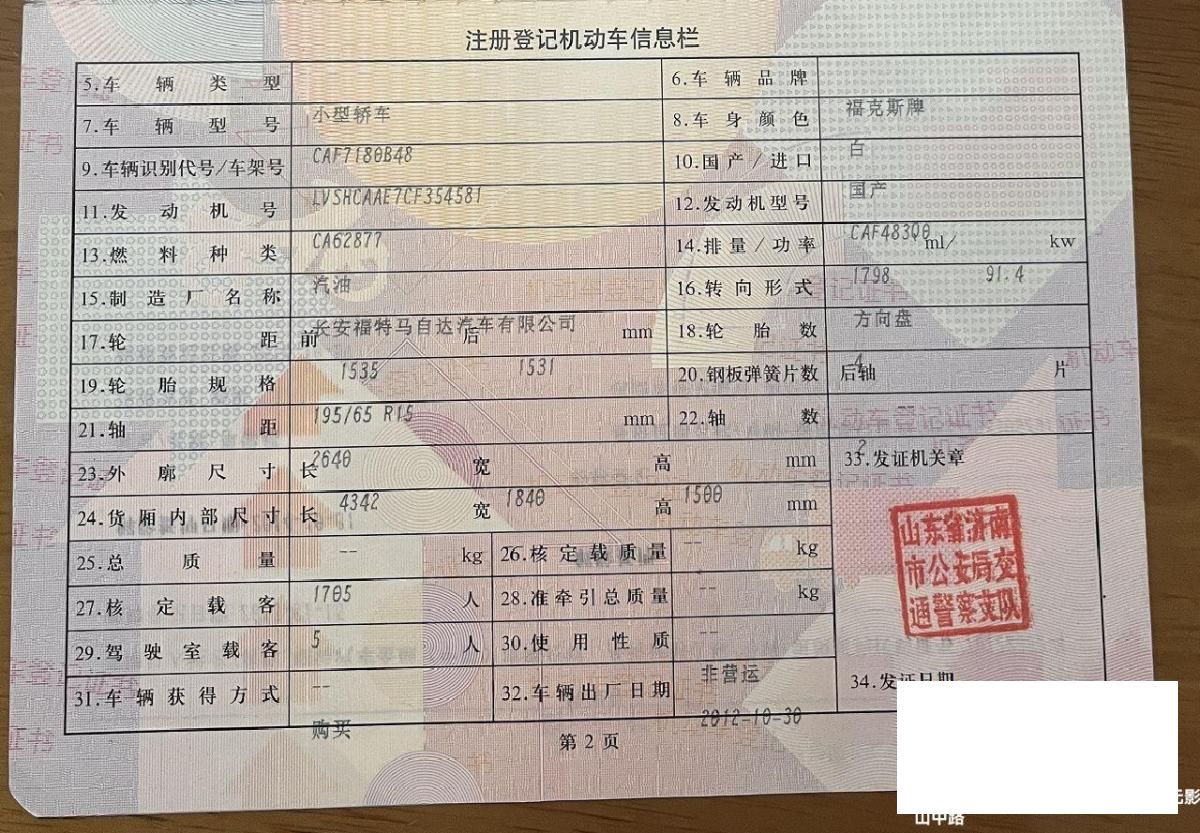 注册登记机动车信息栏
5.车辆类型 6.车辆品牌
小型轿车 福克斯牌
7.车辆型号 8.车身颜色
CAF7180B48 白
9.车辆识别代号/车架号 10.国产/进口
LVSHCAAE7CF354581 国产
11.发动机号 12.发动机型号
CA62877 CAF48300
13.燃料种类 14.排量/功率 ml/ kw
汽油 1798 91.4
15.制造厂名称 16.转向形式
长安福特马自达汽车有限公司 方向盘
17.轮距 前 后 mm 18.轮胎数
1535 1531 4
19.轮胎规格 20.钢板弹簧片数 后轴 片
195/65 R15
21.轴距 mm 22.轴数
2640 2
23.外廓尺寸 长 宽 高 mm 33.发证机关章
4342 1840 1500
24.货厢内部尺寸 长 宽 高 mm
-- --
25.总质量 kg 26.核定载质量 kg
1705 --
27.核定载客 人 28.准牵引总质量 kg
5 --
29.驾驶室载客 人 30.使用性质
-- 非营运
31.车辆获得方式 32.车辆出厂日期 34.发证日期
购买 2012-10-30
山东省济南
市公安局交
通警察支队
第2页
无影
山中路